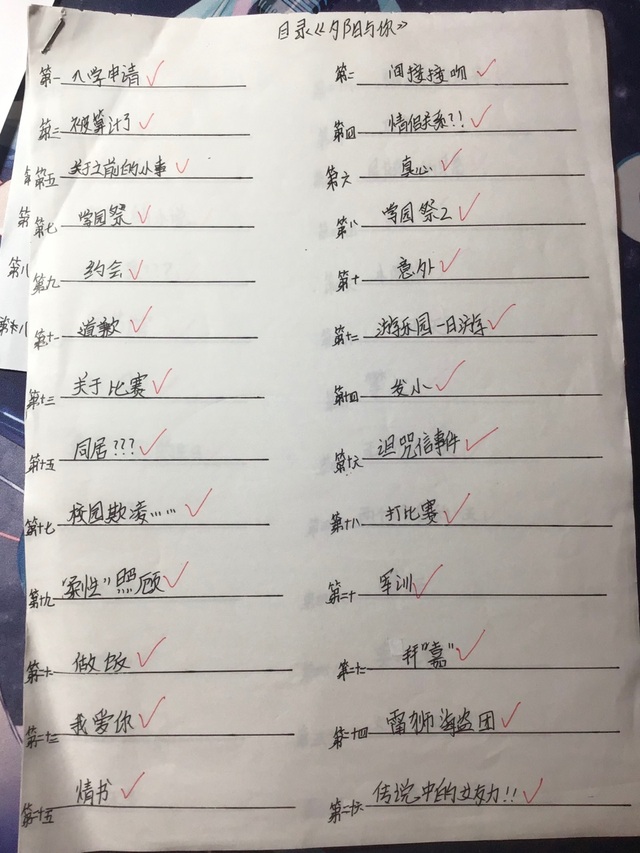 目录《夕阳与你》
第一 入学申请 第二 间接接吻
第三 被算计了 第四 情侣关系?!
第五 关于之前的小事 第六 真心
第 第七 学园祭 第八 学园祭2
第八 第九 约会 第十 意外
第十一 道歉 第十二 游乐园一日游
第十三 关于比赛 第十四 发小
第十五 同居??? 第十六 诅咒信事件
第十七 校园欺凌…… 第十八 打比赛
第十九 "柔性"照顾 第二十 军训
做饭 第二十二 拜"嘉"
第二十三 我爱你 第二十四 雷狮海盗团
第二十五 情书 第二十六 传说中的女友力!!